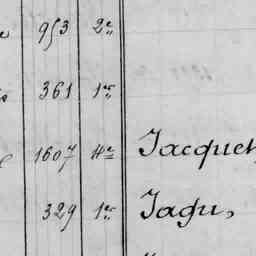 953 2e
361 1er
1607 4e Jacquet,
329 1er Jagu,